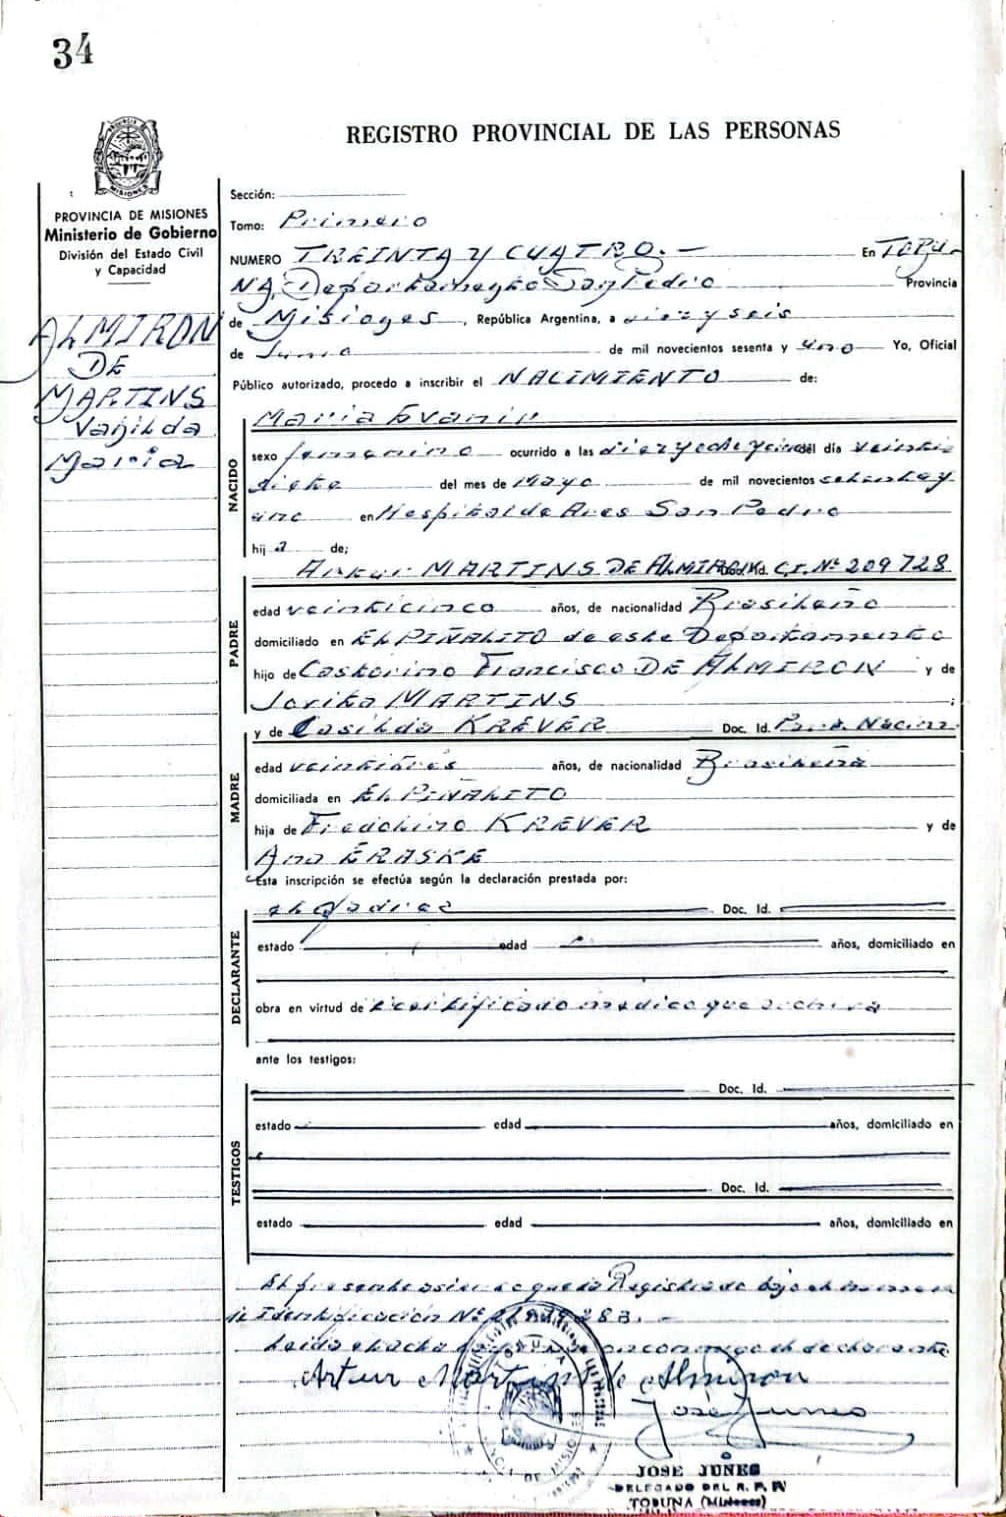 34
REGISTRO PROVINCIAL DE LAS PERSONAS
PROVINCIA DE MISIONES
Ministerio de Gobierno
División del Estado Civil
y Capacidad
ALMIRON
DE
MARTINS
Maria
Sección:
Tomo: Primero
NUMERO TREINTA Y CUATRO.— En TOBU-
NA, Departamento San Pedro Provincia
de Misiones, República Argentina, a diez y seis
de Junio de mil novecientos sesenta y uno Yo, Oficial
Público autorizado, procedo a inscribir el NACIMIENTO de:
NACIDO
Maria
sexo femenino ocurrido a las del día veinti
siete del mes de Mayo de mil novecientos
uno en Hospital de San Pedro
hija de;
PADRE
Artur MARTINS DE ALMIRON C.I. Nº 209728
edad veinticinco años, de nacionalidad Brasileño
domiciliado en EL PIÑALITO de este Departamento
hijo de Francisco DE ALMIRON y de
MARTINS ;
y de Casilda KREVER Doc. Id.
MADRE
edad veintitres años, de nacionalidad Brasileña
domiciliada en EL PIÑALITO
hija de KREVER y de
Ana
Esta inscripción se efectúa según la declaración prestada por:
DECLARANTE
el padre Doc. Id.
estado edad años, domiciliado en
obra en virtud de certificado medico que archiva
ante los testigos:
TESTIGOS
Doc. Id.
estado edad años, domiciliado en
Doc. Id.
estado edad años, domiciliado en
El presente asiento queda Registrado bajo el numero
de Identificación Nº
Leida el acta conmigo el declarante
Artur Martins de Almiron
José Junes
JOSE JUNES
DELEGADO DEL R. P. P.
TOBUNA (Misiones)